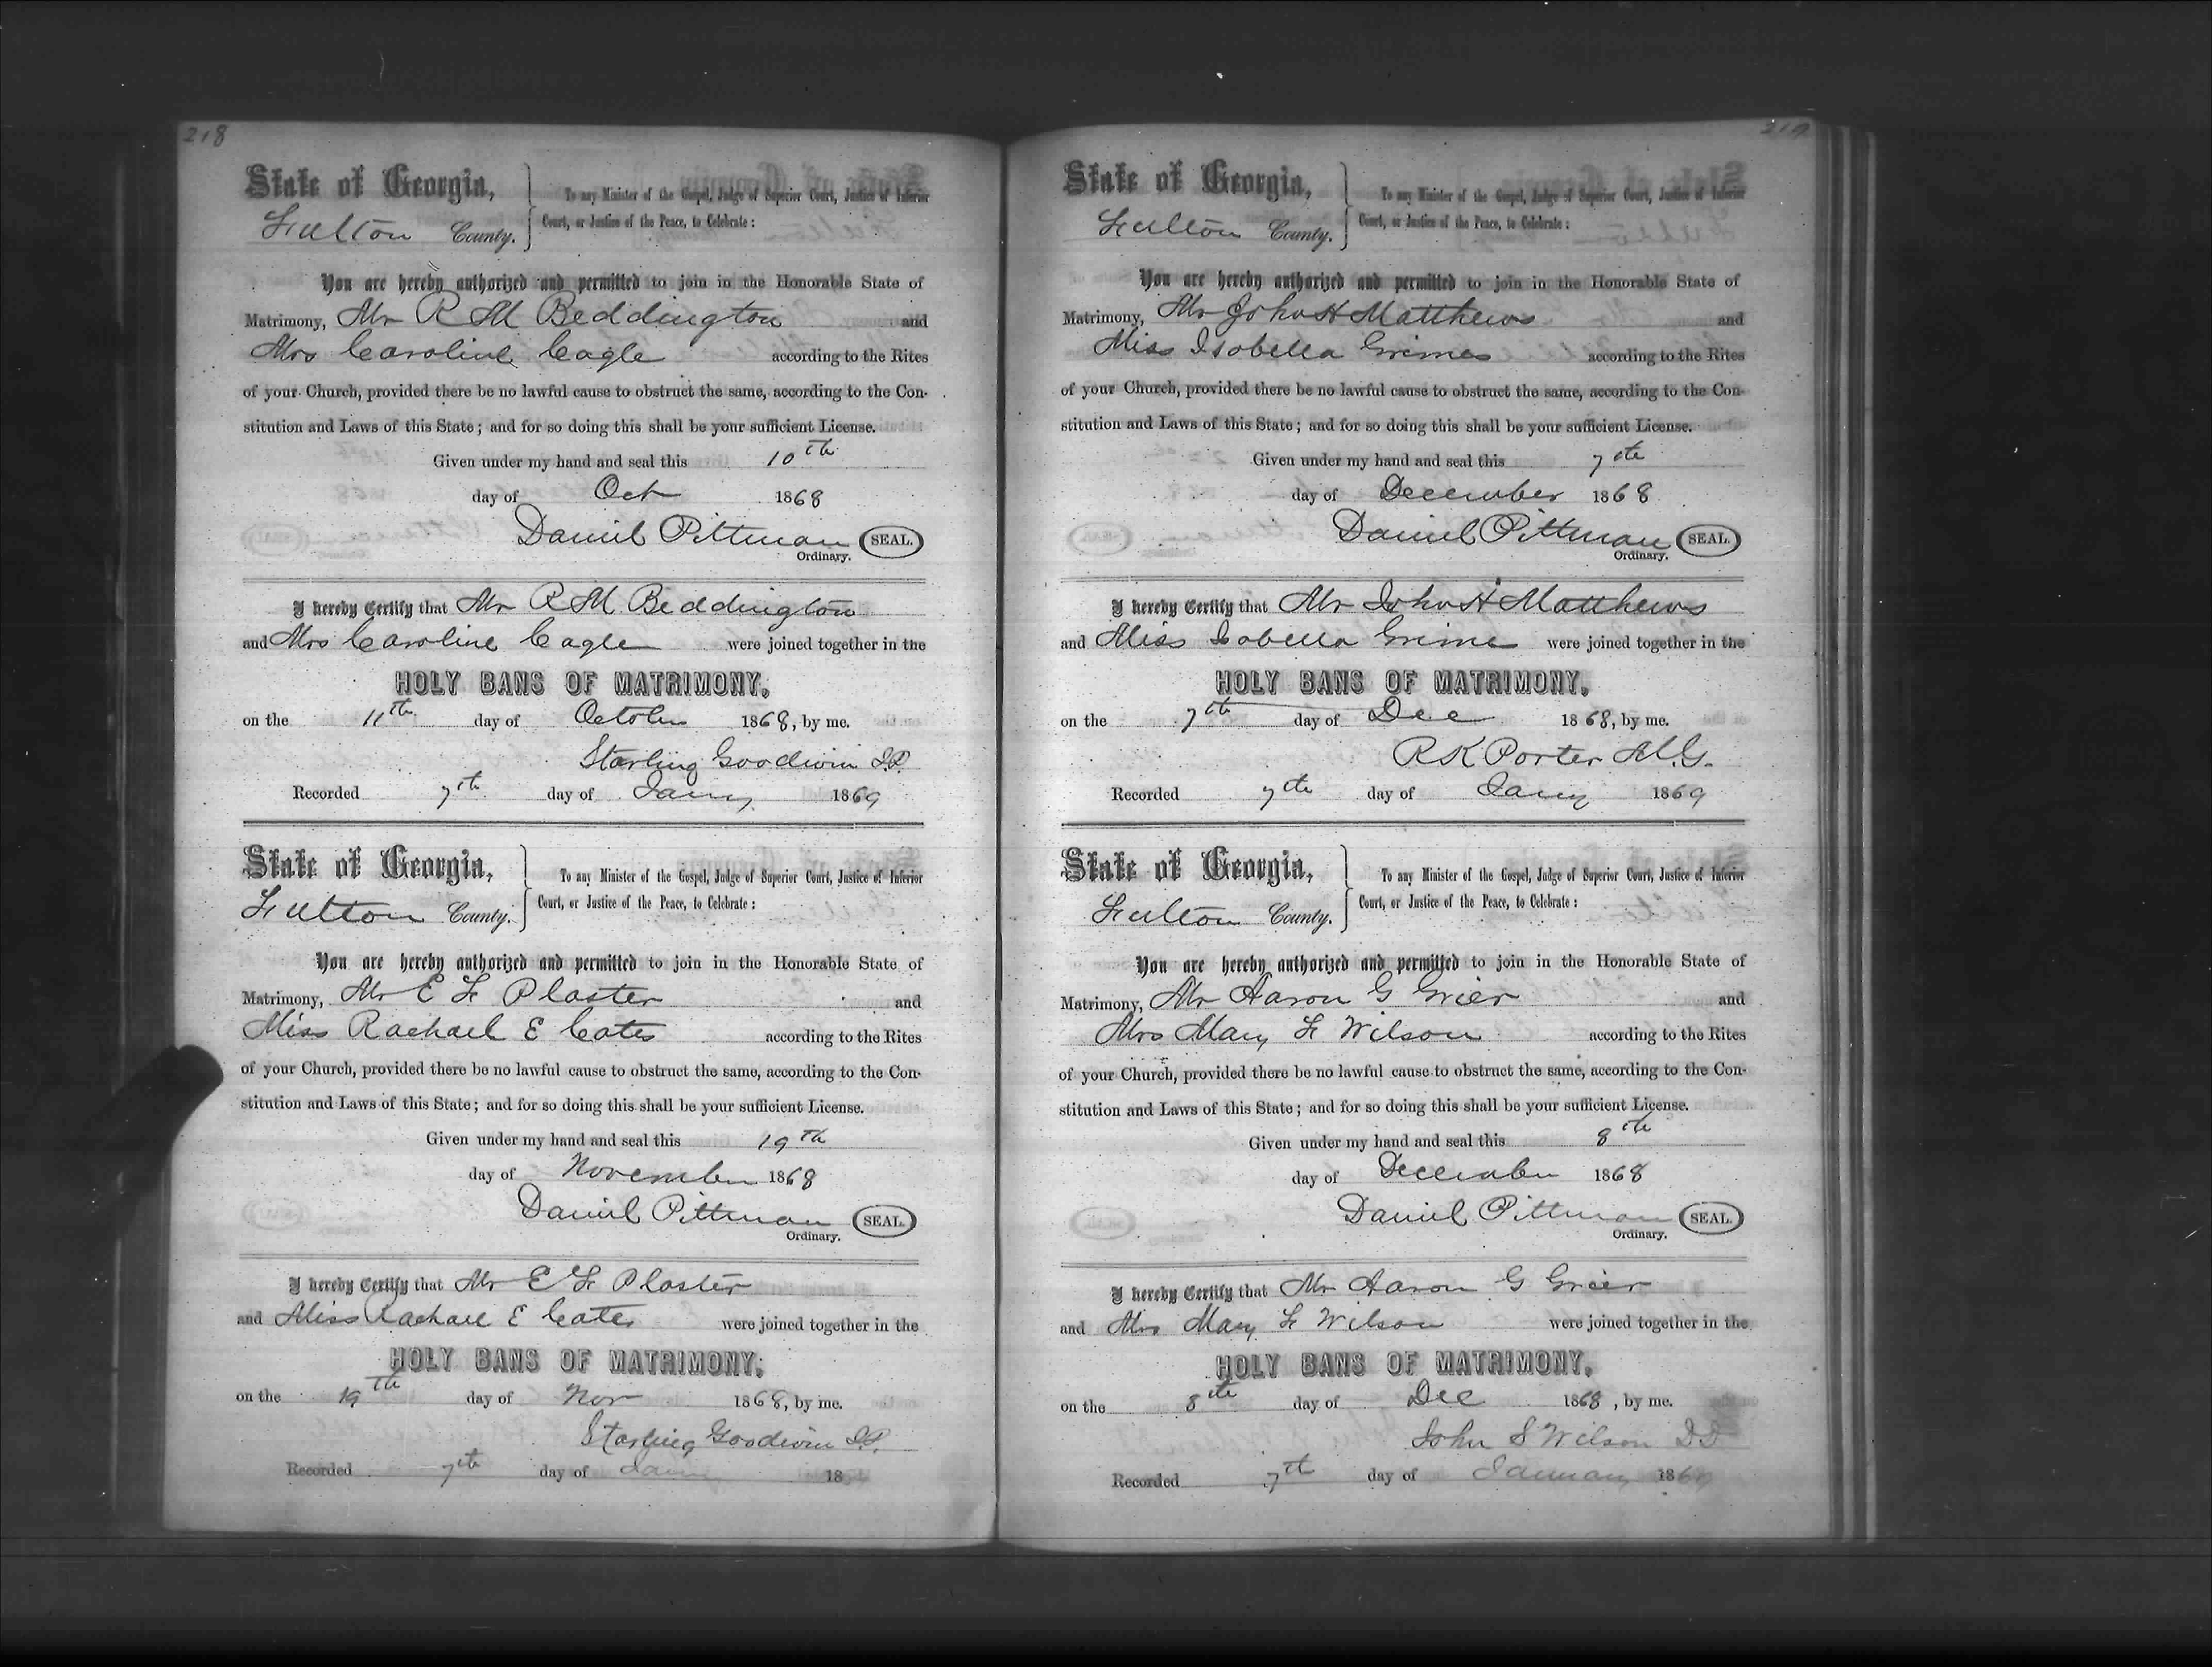 218
State of Georgia,
Fulton County.
To any Minister of the Gospel, Judge of Superior Court, Justice of Inferior
Court, or Justice of the Peace, to Celebrate:
You are hereby authorized and permitted to join in the Honorable State of
Matrimony, Mr R M Beddington and
Mrs Caroline Cagle according to the Rites
of your Church, provided there be no lawful cause to obstruct the same, according to the Con-
stitution and Laws of this State; and for so doing this shall be your sufficient License.
Given under my hand and seal this 10th
day of Oct 1868
Daniel Pittman SEAL.
Ordinary.
I hereby Certify that Mr R M Beddington
and Mrs Caroline Cagle were joined together in the
HOLY BANS OF MATRIMONY,
on the 11th day of October 1868, by me.
Starling Goodwin J.P.
Recorded 7th day of Jany 1869
State of Georgia,
Fulton County.
To any Minister of the Gospel, Judge of Superior Court, Justice of Inferior
Court, or Justice of the Peace, to Celebrate:
You are hereby authorized and permitted to join in the Honorable State of
Matrimony, Mr E F Plaster and
Miss Rachael E Cates according to the Rites
of your Church, provided there be no lawful cause to obstruct the same, according to the Con-
stitution and Laws of this State; and for so doing this shall be your sufficient License.
Given under my hand and seal this 19th
day of November 1868
Daniel Pittman SEAL.
Ordinary.
I hereby Certify that Mr E F Plaster
and Miss Rachael E Cates were joined together in the
HOLY BANS OF MATRIMONY,
on the 19th day of Nov 1868, by me.
Starling Goodwin J.P.
Recorded 7th day of Jany 18
219
State of Georgia,
Fulton County.
To any Minister of the Gospel, Judge of Superior Court, Justice of Inferior
Court, or Justice of the Peace, to Celebrate:
You are hereby authorized and permitted to join in the Honorable State of
Matrimony, Mr John H Matthews and
Miss Isobella Grimes according to the Rites
of your Church, provided there be no lawful cause to obstruct the same, according to the Con-
stitution and Laws of this State; and for so doing this shall be your sufficient License.
Given under my hand and seal this 7th
day of December 1868
Daniel Pittman SEAL.
Ordinary.
I hereby Certify that Mr John H Matthews
and Miss Isobella Grimes were joined together in the
HOLY BANS OF MATRIMONY,
on the 7th day of Dec 1868, by me.
R K Porter M.G.
Recorded 7th day of Jany 1869
State of Georgia,
Fulton County.
To any Minister of the Gospel, Judge of Superior Court, Justice of Inferior
Court, or Justice of the Peace, to Celebrate:
You are hereby authorized and permitted to join in the Honorable State of
Matrimony, Mr Aaron G Grier and
Mrs Mary F Wilson according to the Rites
of your Church, provided there be no lawful cause to obstruct the same, according to the Con-
stitution and Laws of this State; and for so doing this shall be your sufficient License.
Given under my hand and seal this 8th
day of December 1868
Daniel Pittman SEAL.
Ordinary.
I hereby Certify that Mr Aaron G Grier
and Mrs Mary F Wilson were joined together in the
HOLY BANS OF MATRIMONY,
on the 8th day of Dec 1868, by me.
John S Wilson DD
Recorded 7th day of January 1869